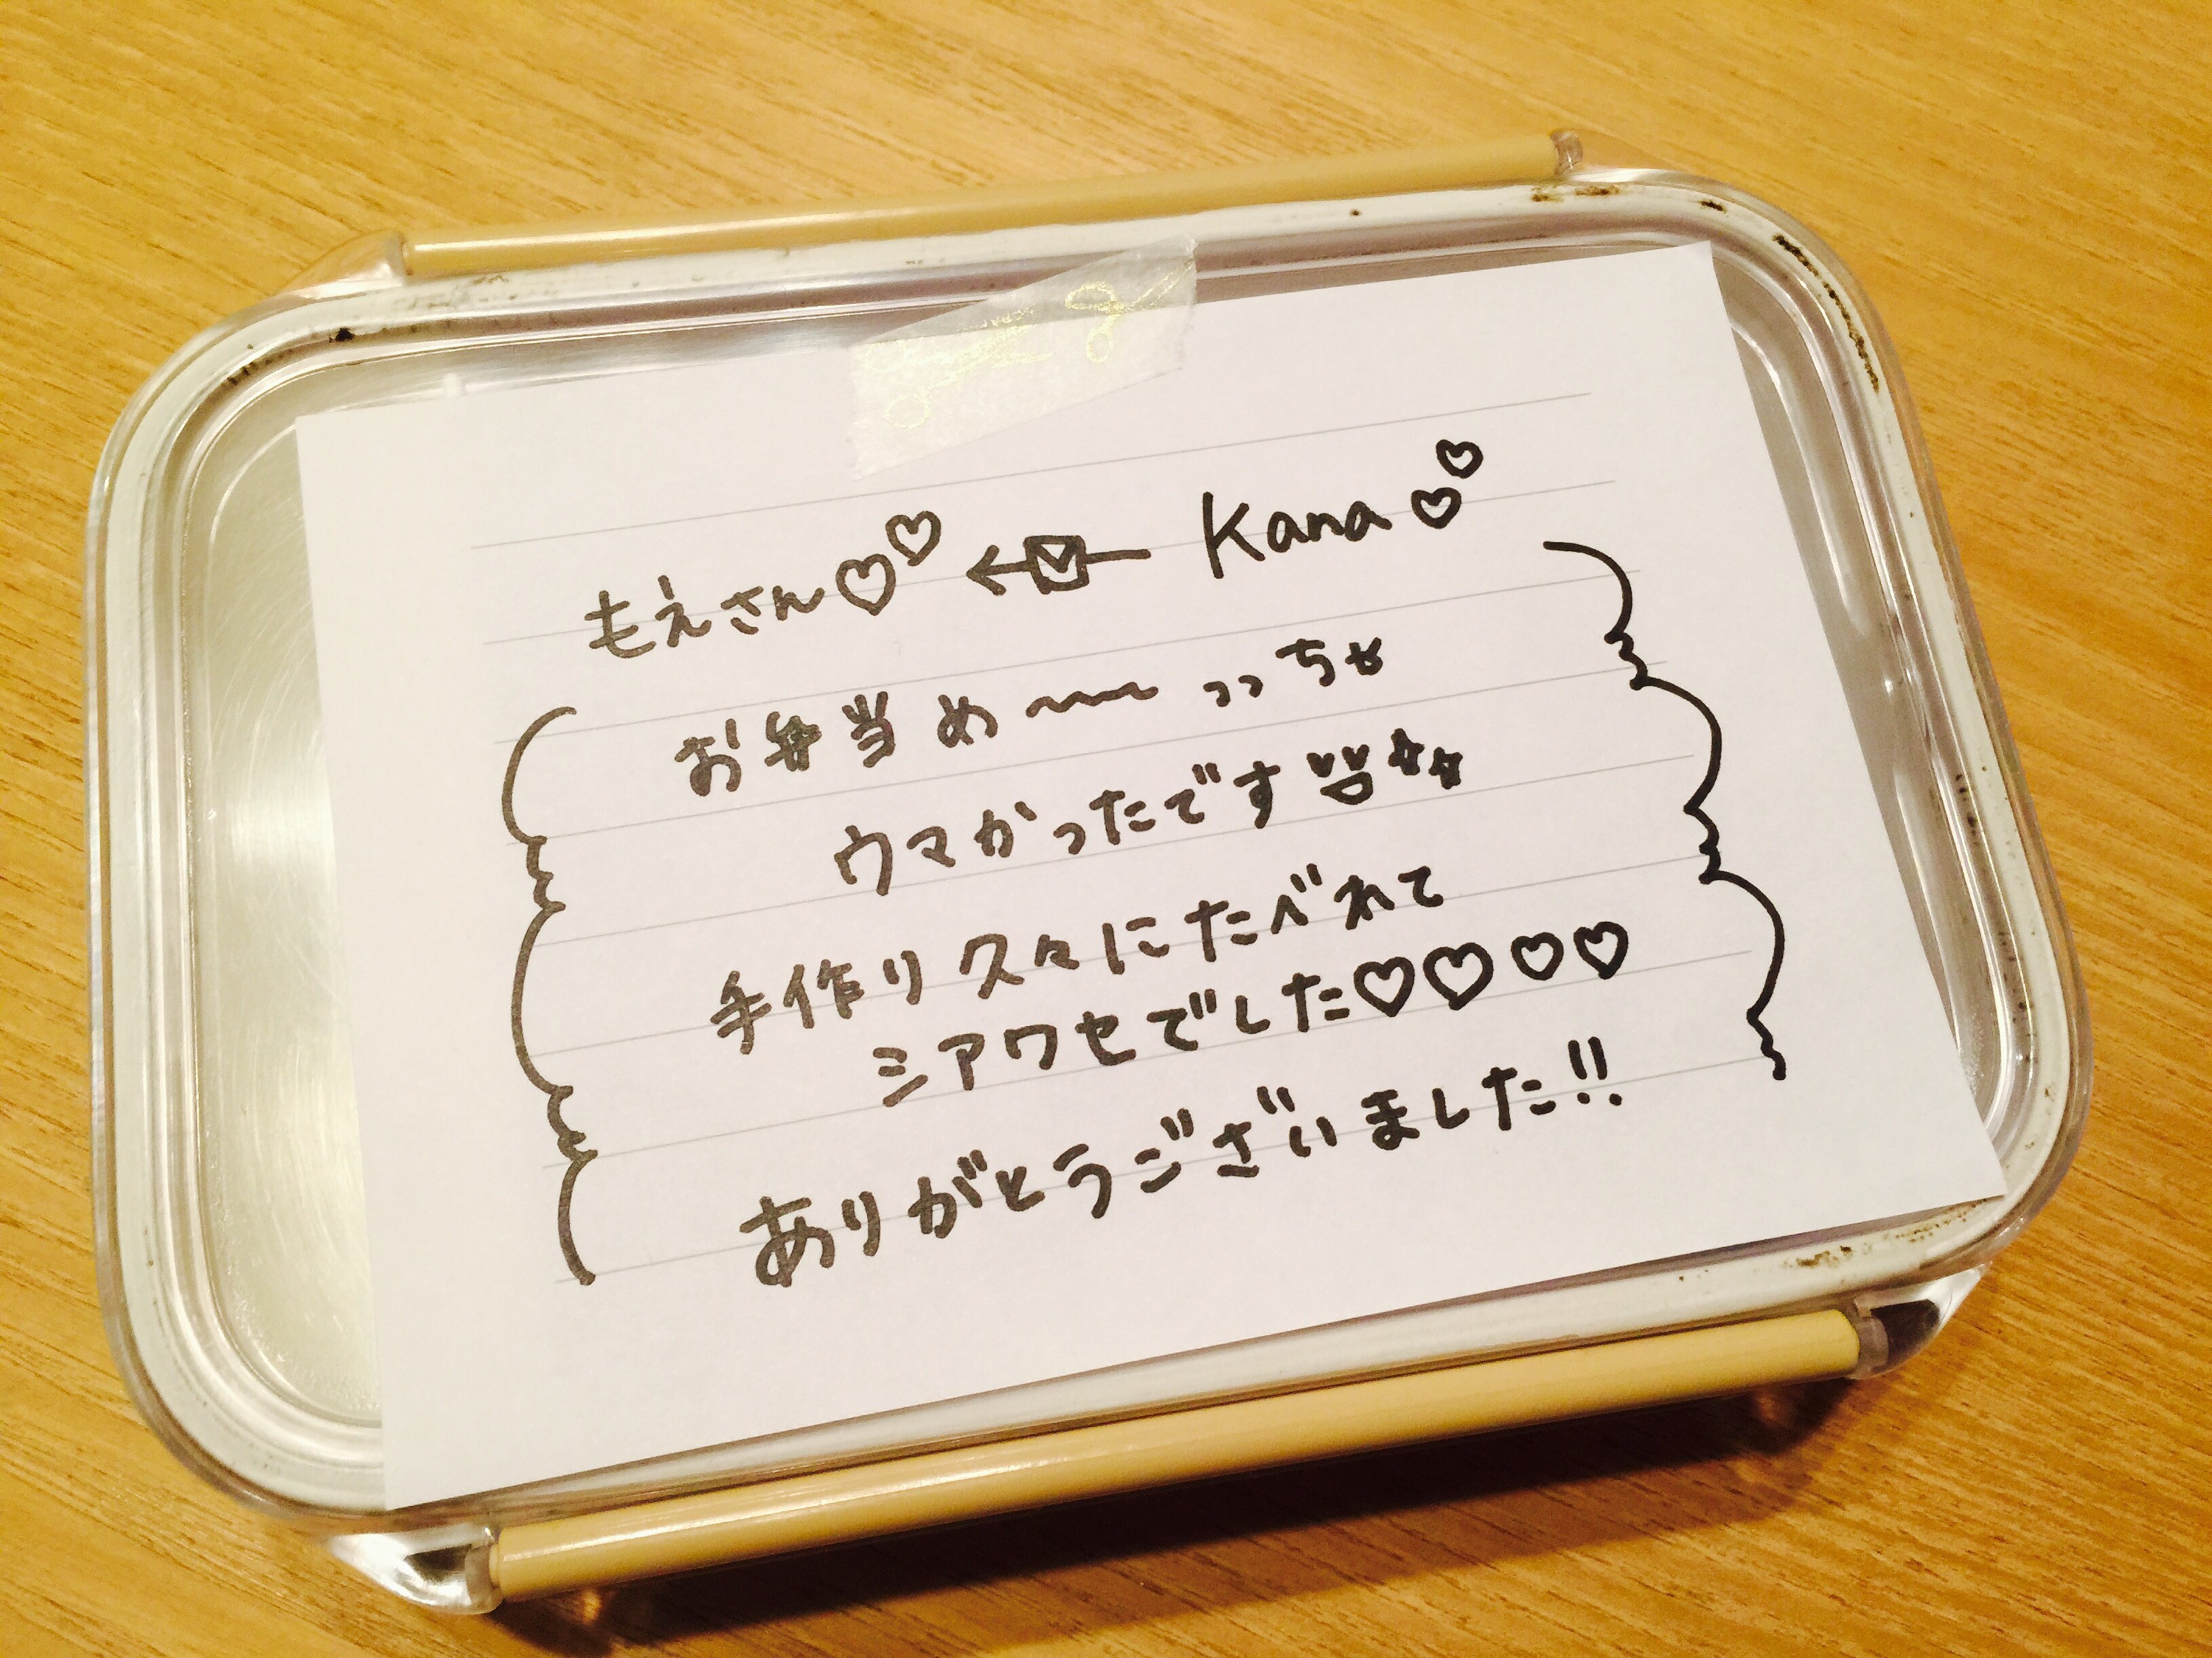 もえさん♡♡ ← Kana♡♡
お弁当め〜〜っっちゃ
ウマかったです☆☆
手作り久々にたべれて
シアワセでした♡♡♡♡
ありがとうございました!!